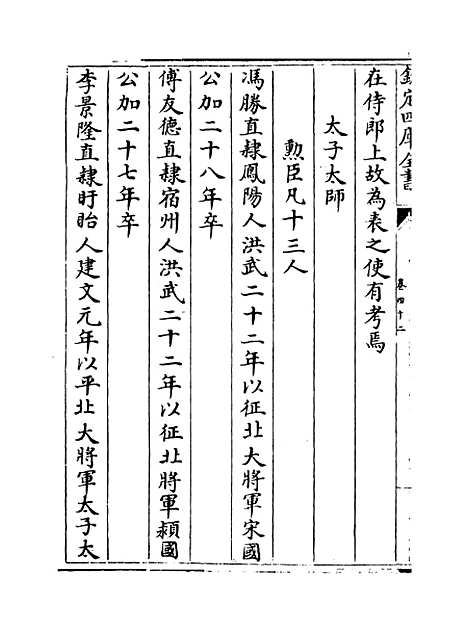 欽定四庫全書
卷四十二
在侍郎上故為表之使有考焉
太子太師
勲臣凡十三人
馮勝直隸鳳陽人洪武二十二年以征北大將軍宋國
公加二十八年卒
傅友德直隸宿州人洪武二十二年以征北將軍潁國
公加二十七年卒
李景隆直隸盱眙人建文元年以平北大將軍太子太